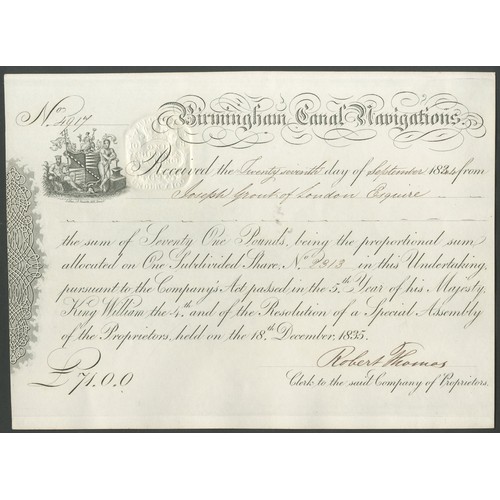 No. 4917
Birmingham Canal Navigations.
Received the Twenty seventh day of September 1844 from
Joseph Grout of London Esquire
the sum of Seventy One Pounds, being the proportional sum
allocated on One Subdivided Share, No. 7813 in this Undertaking,
pursuant to the Company's Act passed in the 5th Year of his Majesty
King William the 4th and of the Resolution of a Special Assembly
of the Proprietors, held on the 18th December, 1835.
Robert Thomas
£71.0.0
Clerk to the said Company of Proprietors.